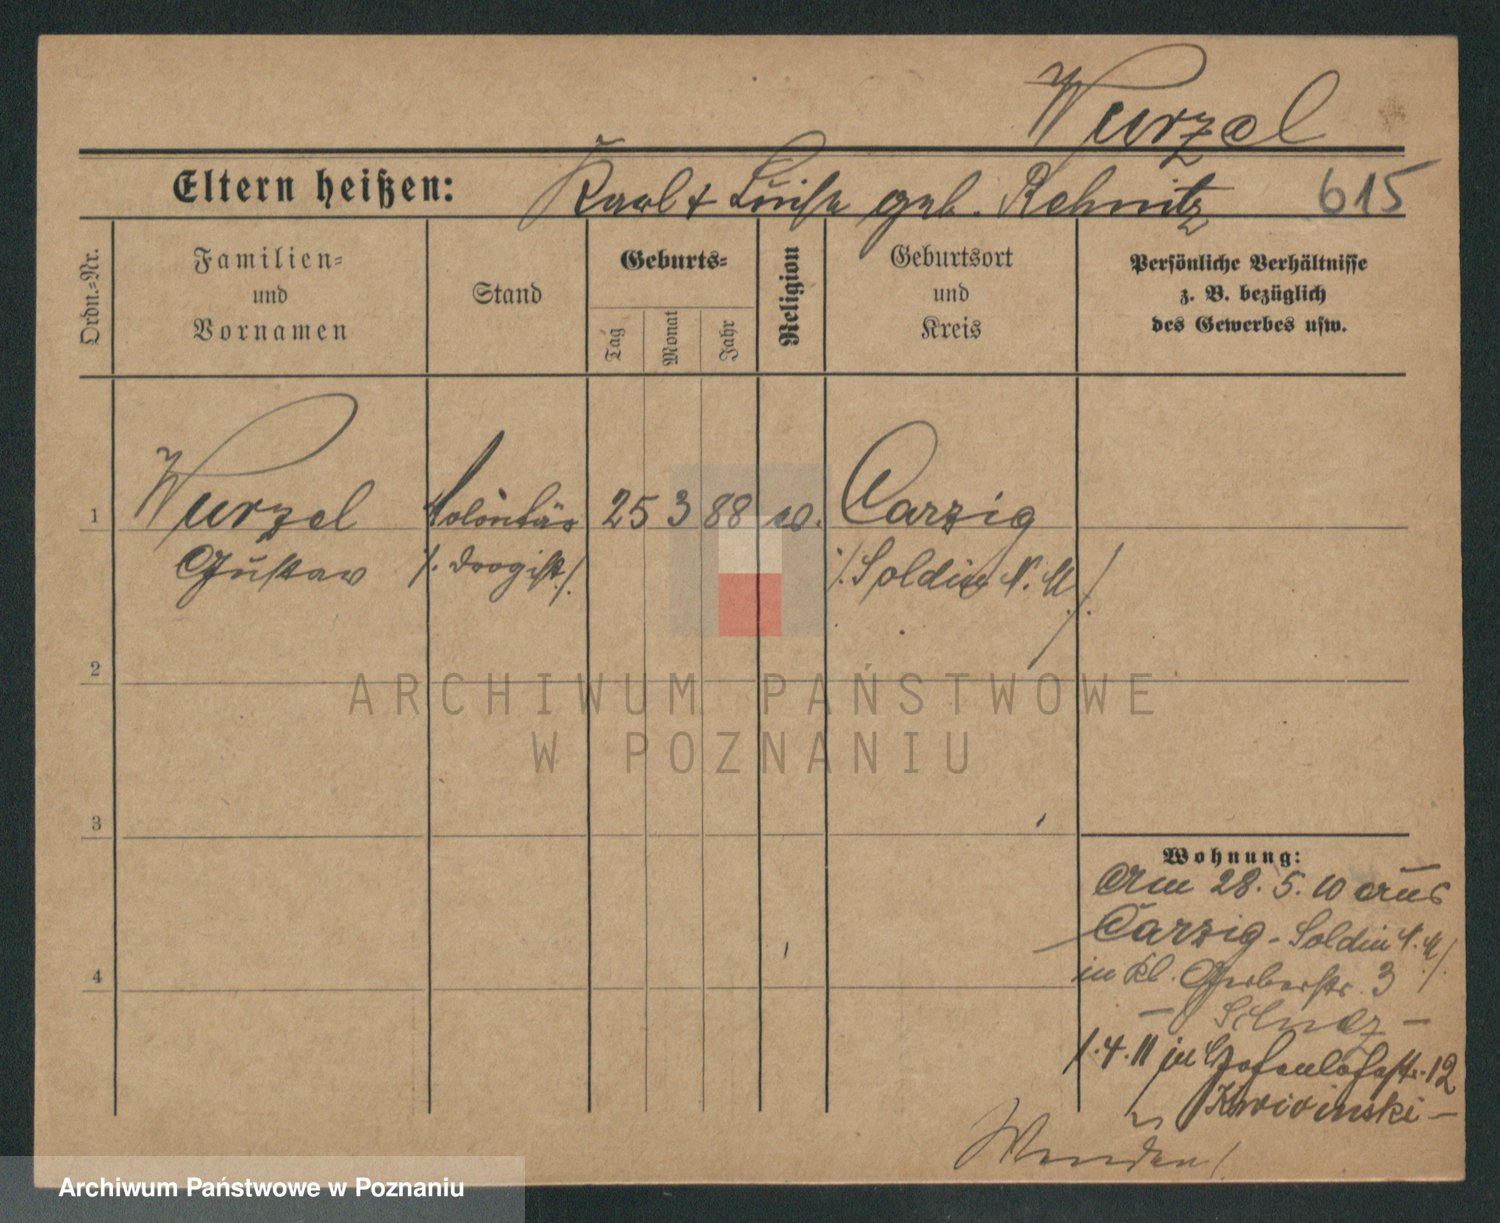 Wurzel
Eltern heißen: Karl + Luise geb. Rehnitz 615
Ordn.-Nr.
Familien-
und
Vornamen
Stand
Geburts-
Tag
Monat
Jahr
Religion
Geburtsort
und
Kreis
Persönliche Verhältnisse
z. B. bezüglich
des Gewerbes usw.
1 Wurzel Volontär 25 3 88 ev. Carzig
Gustav /. Drogist ./ /. Soldin N. M ./
2
ARCHIWUM PAŃSTWOWE
W POZNANIU
3
Wohnung:
Am 28. 5. 10 aus
Carzig - Soldin N. M /.
4
in Kl. Gerberstr. 3
— Schulz —
1.4.11 zu Hohenlohestr. 12
—
Wenden!
Archiwum Państwowe w Poznaniu